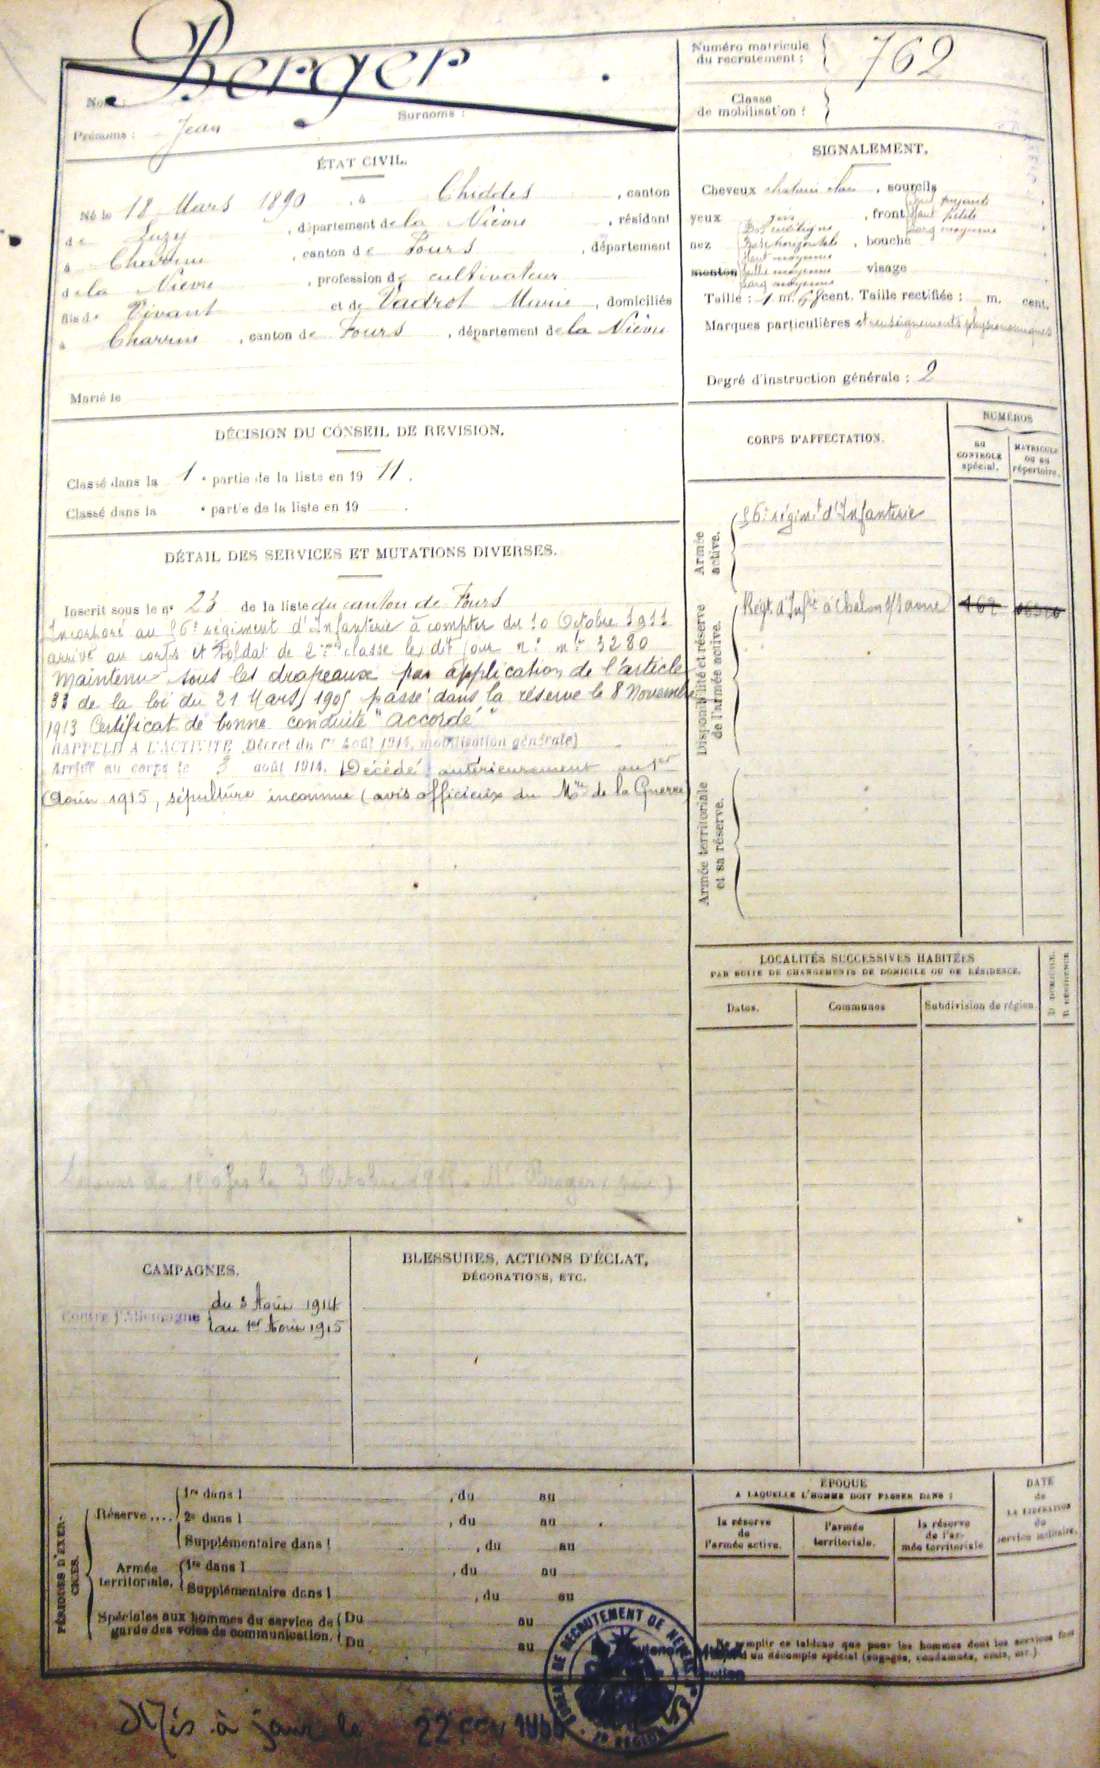 Berger
Nom :
Surnoms :
Prénoms : Jean
Numéro matricule
du recrutement : 762
Classe
de mobilisation :
ÉTAT CIVIL.
Né le 18 Mars 1890, à Chiddes, canton
de Luzy, département de la Nièvre, résidant
à Charrin, canton de Fours, département
de la Nièvre, profession de cultivateur
fils de Vivant et de Vadrot Marie, domiciliés
à Charrin, canton de Fours, département de la Nièvre
Marié le
SIGNALEMENT.
Cheveux chatain clair, sourcils
yeux gris, front
nez, bouche
menton visage
Taille : 1 m. cent. Taille rectifiée : m. cent.
Marques particulières et renseignements physionomiques
Degré d'instruction générale : 2
DÉCISION DU CONSEIL DE REVISION.
Classé dans la 1e partie de la liste en 1911.
Classé dans la e partie de la liste en 19 .
DÉTAIL DES SERVICES ET MUTATIONS DIVERSES.
Inscrit sous le no 23 de la liste du canton de Fours
Incorporé au 56e régiment d'Infanterie à compter du 10 Octobre 1911
arrivé au corps et Soldat de 2me classe le dit jour no mle 3280
Maintenu sous les drapeaux par application de l'article
33 de la loi du 21 Mars 1905 passé dans la réserve le 8 Novembre
1913 Certificat de bonne conduite "accordé"
RAPPELÉ A L'ACTIVITÉ (Décret du 1er Août 1914, mobilisation générale)
Arrivé au corps le 3 août 1914. Décédé antérieurement au 1er
Août 1915, sépulture inconnue (avis officieux du Mtre de la Guerre)
CORPS D'AFFECTATION.
NUMÉROS
AU CONTROLE spécial.
MATRICULE OU AU répertoire.
Armée active.
56e régimt d'Infanterie
Disponibilité et réserve de l'armée active.
Régt d'Infie à Chalon s/Saone
Armée territoriale et sa réserve.
LOCALITÉS SUCCESSIVES HABITÉES
PAR SUITE DE CHANGEMENTS DE DOMICILE OU DE RÉSIDENCE.
Dates.
Communes
Subdivision de région.
D. DOMICILE.
R. RÉSIDENCE.
CAMPAGNES.
Contre l'Allemagne
du 3 Août 1914
au 1er Août 1915
BLESSURES, ACTIONS D'ÉCLAT,
DÉCORATIONS, ETC.
PÉRIODES D'EXERCICES.
Réserve....
1re dans l , du au
2e dans l , du au
Supplémentaire dans l , du au
Armée territoriale.
1re dans l , du au
Supplémentaire dans l , du au
Spéciales aux hommes du service de
garde des voies de communication.
Du au
Du au
ÉPOQUE
A LAQUELLE L'HOMME DOIT PASSER DANS :
la réserve de l'armée active.
l'armée territoriale.
la réserve de l'armée territoriale
DATE de LA LIBÉRATION du service militaire.
Ne remplir ce tableau que pour les hommes dont les services font
un décompte spécial (engagés, condamnés, omis, etc.)
BUREAU DE RECRUTEMENT DE NEVERS
Mis à jour le 22